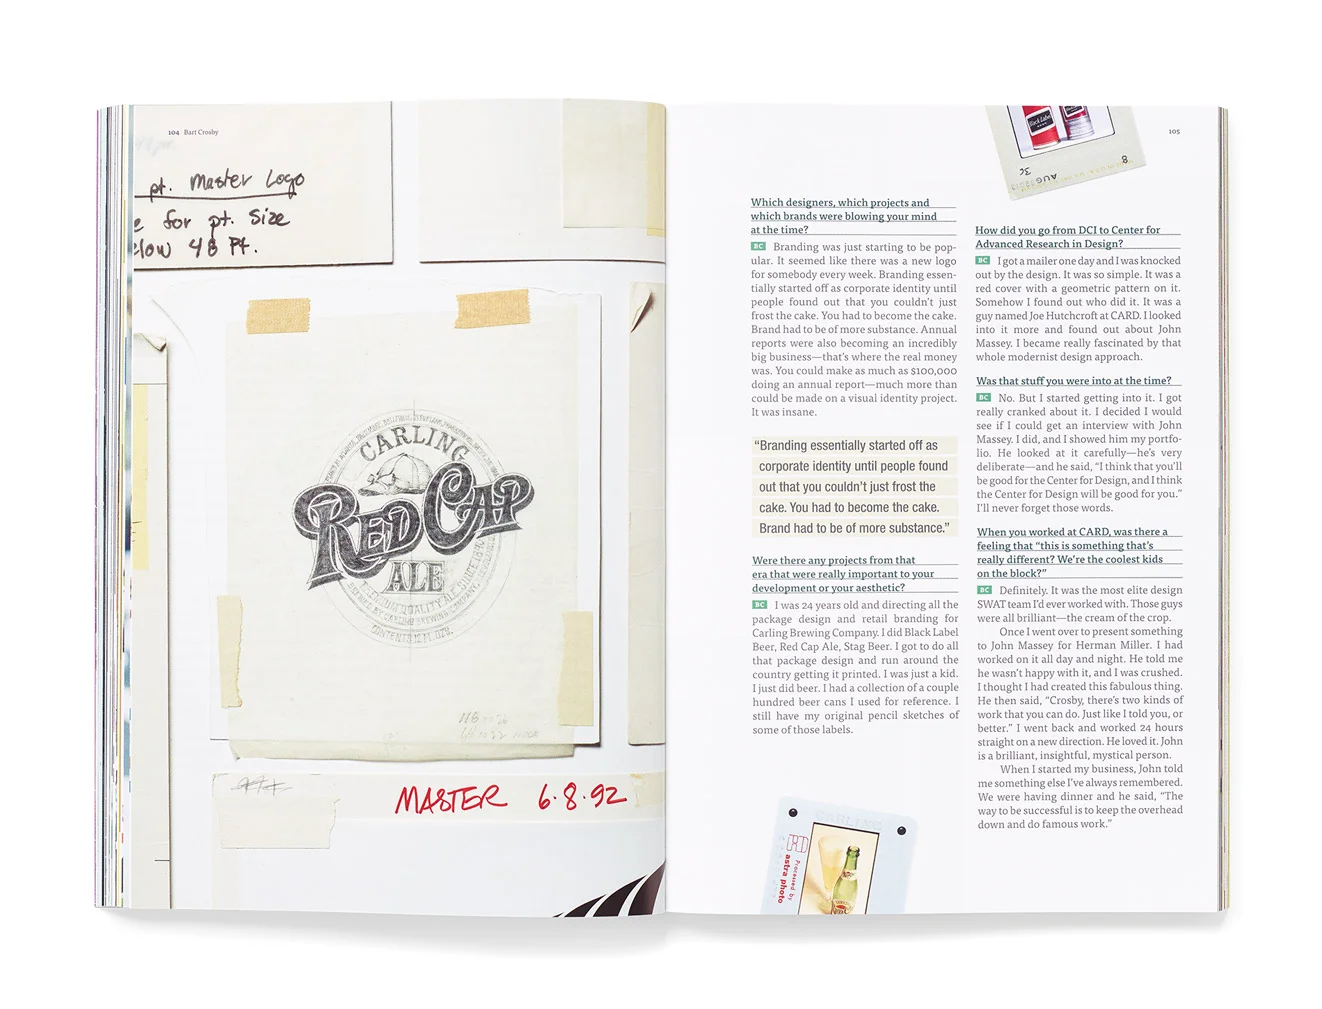 104 Bart Crosby
pt. Master Logo
for pt. size
48 Pt.
CARLING
RED CAP
ALE
PREMIUM QUALITY ALE
CONTENTS 12 FL. OZS.
MASTER 6·8·92
105
Black Label
AUG
8
Which designers, which projects and
which brands were blowing your mind
at the time?
BC Branding was just starting to be pop-
ular. It seemed like there was a new logo
for somebody every week. Branding essen-
tially started off as corporate identity until
people found out that you couldn't just
frost the cake. You had to become the cake.
Brand had to be of more substance. Annual
reports were also becoming an incredibly
big business—that's where the real money
was. You could make as much as $100,000
doing an annual report—much more than
could be made on a visual identity project.
It was insane.
“Branding essentially started off as
corporate identity until people found
out that you couldn't just frost the
cake. You had to become the cake.
Brand had to be of more substance.”
Were there any projects from that
era that were really important to your
development or your aesthetic?
BC I was 24 years old and directing all the
package design and retail branding for
Carling Brewing Company. I did Black Label
Beer, Red Cap Ale, Stag Beer. I got to do all
that package design and run around the
country getting it printed. I was just a kid.
I just did beer. I had a collection of a couple
hundred beer cans I used for reference. I
still have my original pencil sketches of
some of those labels.
Processed by
astra photo
How did you go from DCI to Center for
Advanced Research in Design?
BC I got a mailer one day and I was knocked
out by the design. It was so simple. It was a
red cover with a geometric pattern on it.
Somehow I found out who did it. It was a
guy named Joe Hutchcroft at CARD. I looked
into it more and found out about John
Massey. I became really fascinated by that
whole modernist design approach.
Was that stuff you were into at the time?
BC No. But I started getting into it. I got
really cranked about it. I decided I would
see if I could get an interview with John
Massey. I did, and I showed him my portfo-
lio. He looked at it carefully—he's very
deliberate—and he said, “I think that you'll
be good for the Center for Design, and I think
the Center for Design will be good for you.”
I'll never forget those words.
When you worked at CARD, was there a
feeling that “this is something that's
really different? We're the coolest kids
on the block?”
BC Definitely. It was the most elite design
SWAT team I'd ever worked with. Those guys
were all brilliant—the cream of the crop.
Once I went over to present something
to John Massey for Herman Miller. I had
worked on it all day and night. He told me
he wasn't happy with it, and I was crushed.
I thought I had created this fabulous thing.
He then said, “Crosby, there's two kinds of
work that you can do. Just like I told you, or
better.” I went back and worked 24 hours
straight on a new direction. He loved it. John
is a brilliant, insightful, mystical person.
When I started my business, John told
me something else I've always remembered.
We were having dinner and he said, “The
way to be successful is to keep the overhead
down and do famous work.”